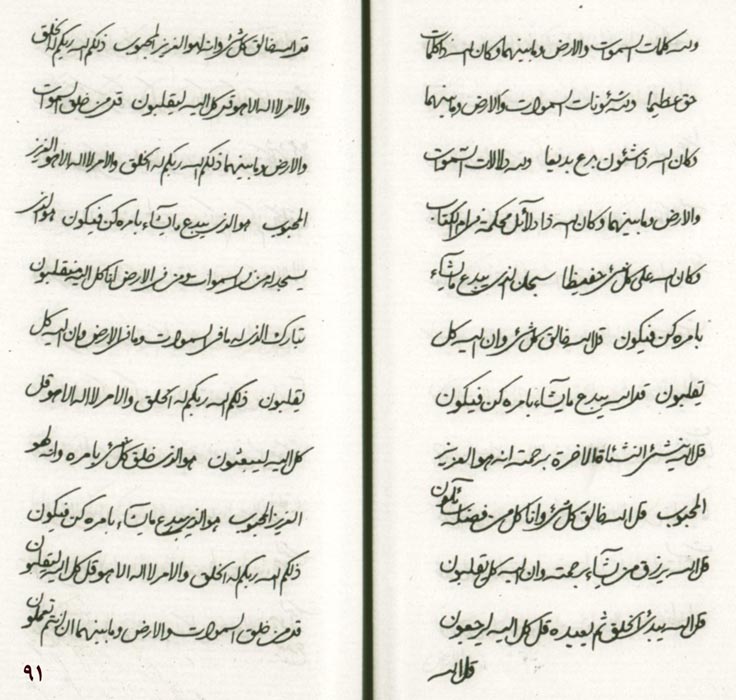 ولله كلمات السموات والارض وما بينهما وكان الله ذا كلمات
حق عظيما ولله شئونات السموات والارض وما بينهما
وكان الله ذا شئون بدع بديعا ولله دلالات السموات
والارض وما بينهما وكان الله ذا دلائل محكمة فى ام الكتاب
وكان الله على كل شىء حفيظا سبحان الذى يبدع ما يشاء
بامره كن فيكون قل الله خالق كل شىء وان اليه كل
يقلبون قل الله يبدع ما يشاء بامره كن فيكون
قل الله ينشئ النشاة الاخرة برحمته انه هو العزيز
المحبوب قل الله خالق كل شىء وانا كل من فضله سائلون
قل الله يرزق من يشاء برحمته وان اليه كل يقلبون
قل الله يبدئ الخلق ثم يعيده قل كل اليه ليرجعون
قل الله
قل الله خالق كل شىء وانه لهو العزيز المحبوب ذلكم الله ربكم له الخلق
والامر لا اله الا هو قل كل اليه ليقلبون قل من خلق السموات
والارض وما بينهما ذلكم الله ربكم له الخلق والامر لا اله الا هو العزيز
المحبوب هو الذى يبدع ما يشاء بامره كن فيكون هو الذى
يسجد له من فى السموات ومن فى الارض انا كل اليه يقلبون
تبارك الذى له ما فى السموات وما فى الارض وان اليه كل
يقلبون ذلكم الله ربكم له الخلق والامر لا اله الا هو قل
كل اليه ليبعثون هو الذى خلق كل شىء بامره وانه لهو
العزيز المحبوب هو الذى يبدع ما يشاء بامره كن فيكون
ذلكم الله ربكم له الخلق والامر لا اله الا هو قل كل اليه ليقلبون
قل من خلق السموات والارض وما بينهما ان انتم تعلمون
٩١